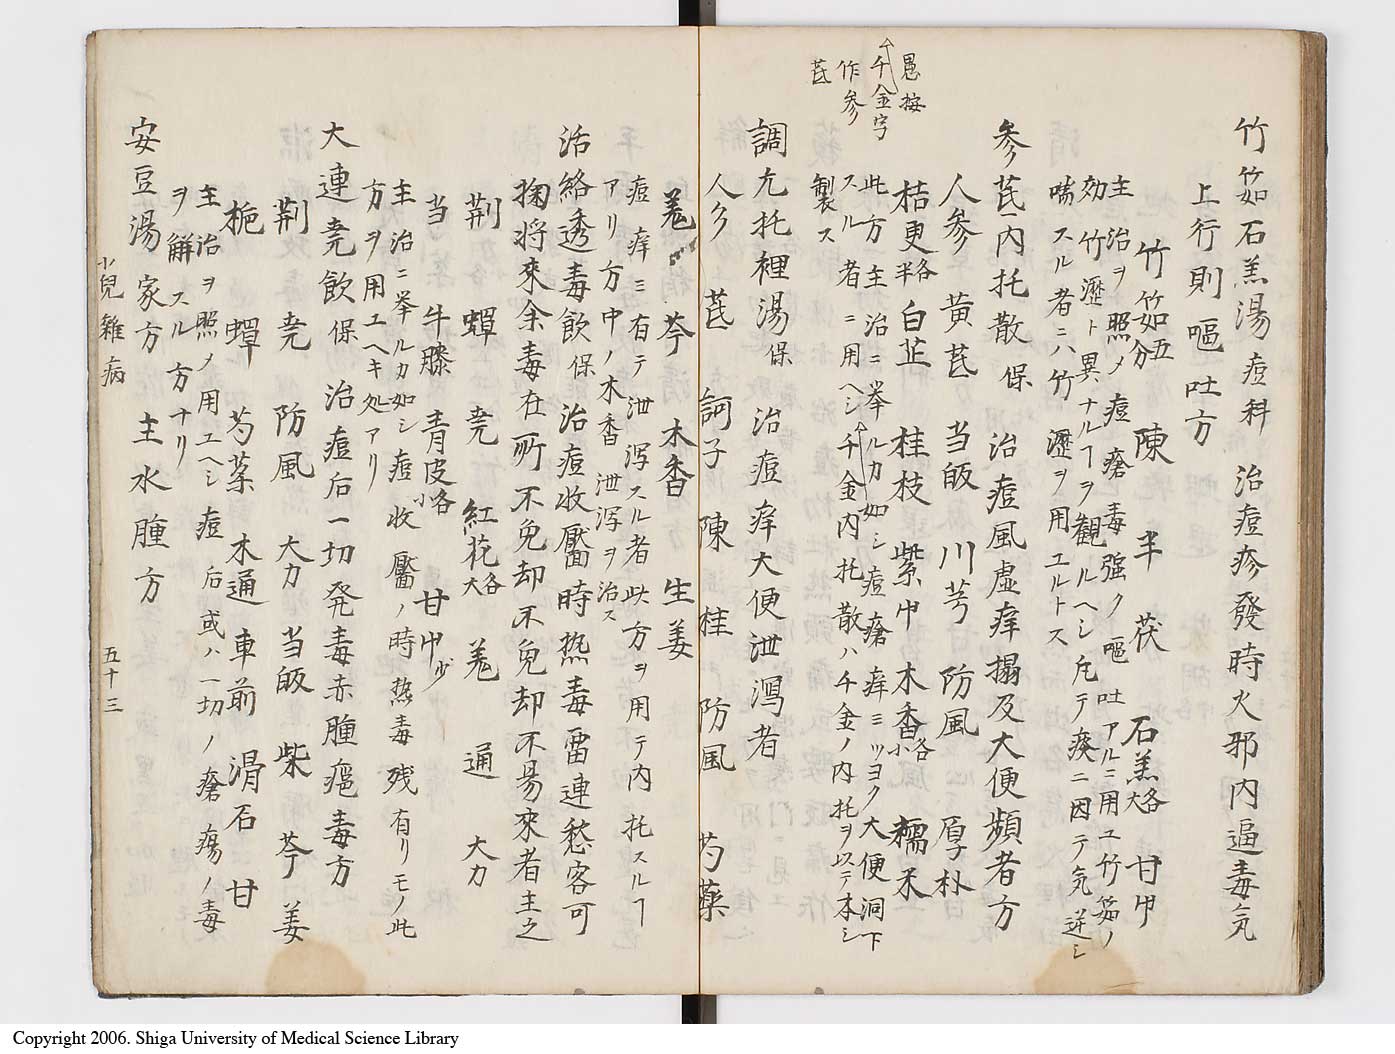 竹筎石羔湯痘科　治痘疹發時火邪内逼毒気
上行則嘔吐方
竹筎五分　陳　半　茯　石羔各大　甘中
主治ヲ照メ痘瘡毒强ク嘔吐アルニ用ユ竹筎ノ
効竹瀝ト異ナルヿヲ観ルヘシ凡テ痰ニ因テ気逆シ
喘スル者ニハ竹瀝ヲ用ユルトス
参芪内托散保　治痘風虚痒搨及大便頻者方
人参　黄芪　当皈　川芎　防風　厚朴
桔更各半　白芷　桂枝　紫中　木香各小　糯米
此方主治ニ挙ルカ如シ痘瘡痒ミツヨク大便洞下
スル者ニ用ヘシ千金内托散ハ千金ノ内托ヲ以テ本シ
製ス
愚按
千金字
作参
芪
調元托裡湯保　治痘痒大便泄瀉者
人参　芪　訶子　陳　桂　防風　芍薬
羗　芩　木香　生姜
痘痒ミ有テ泄瀉スル者此方ヲ用テ内托スルヿ
アリ方中ノ木香泄瀉ヲ治ス
活絡透毒飲保　治痘收靨時热毒雷連愁客可
掬将來余毒在所不免却不免却不昜來者主之
荆　蟬　尭　紅花各大　羗　通　大力
当　牛膝　青皮各小　甘中少
主治ニ挙ルカ如シ痘收靨ノ時热毒残有リモノ此
方ヲ用ユヘキ処アリ
大連尭飲保　治痘后一切発毒赤腫瘟毒方
荆　尭　防風　大力　当皈　柴　芩　姜
梔　蟬　芍薬　木通　車前　滑石　甘
主治ヲ照メ用ユヘシ痘后或ハ一切ノ瘡瘍ノ毒
ヲ解スル方ナリ
安豆湯家方　主水腫方
小兒雜病　五十三
Copyright 2006. Shiga University of Medical Science Library